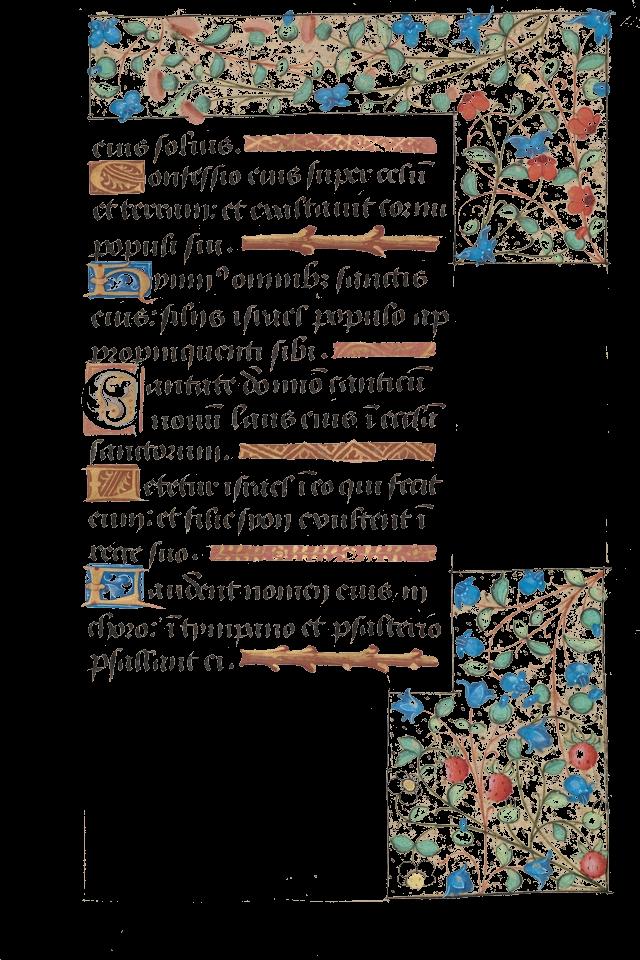 eius solius.
Confessio eius super celū
et terram: et exaltauit cornu
populi sui.
Hymnꝰ omnibꝫ sanctis
eius: filijs israel populo ap
propinquenti sibi.
Cantate domño canticū
nouū laus eius ī ecclā
sanctorum.
Letetur israel ī eo qui fecit
eum: et filie syon exultent ī
rege suo.
Laudent nomen eius in
choro: ī tympano et psalterio
psallant ei.